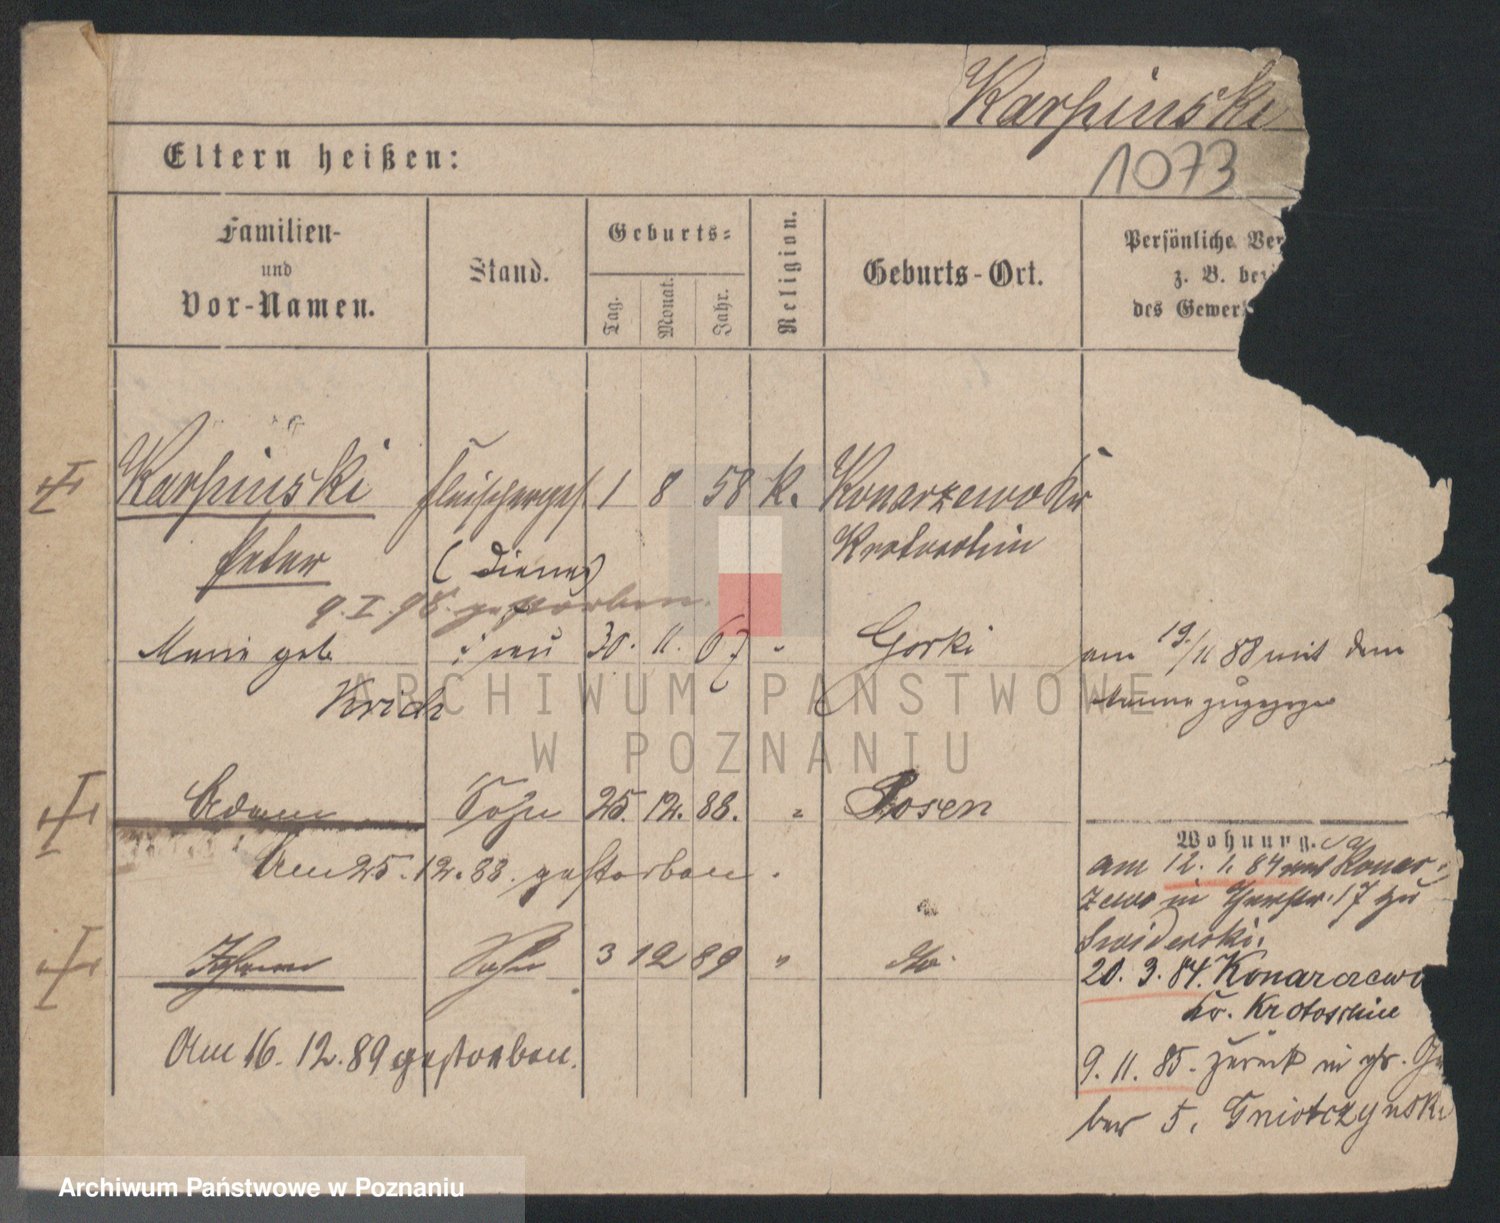 Karpinski
1073
Eltern heißen:
Familien-
und
Vor-Namen.
Stand.
Geburts-
Tag.
Monat.
Jahr.
Religion.
Geburts-Ort.
Persönliche Ver
z. B. bezü
des Gewer
Karpinski Fleischerges. 1 8 58 k. Konarzewo Kr
Peter (Diener) Krotoschin
9. I. 98. gestorben.
Marie geb. 30. 11. 67 " Gorki am 19./11 88 mit dem
Manne zugezogen
ARCHIWUM PAŃSTWOWE
W POZNANIU
Adam Sohn 25. 12. 88. " Posen
Wohnung.
Am 25. 12. 88. gestorben.
am 12. 1. 84 Konar
zewo in 17 zu
Swiderski.
Sohn 3 12 89 " do.
20. 3. 84. Konarzewo
Kr. Krotoschin
Am 16. 12. 89 gestorben.
9. 11. 85. zurück in gr. Ger
ber 5. Gniotczynski
Archiwum Państwowe w Poznaniu